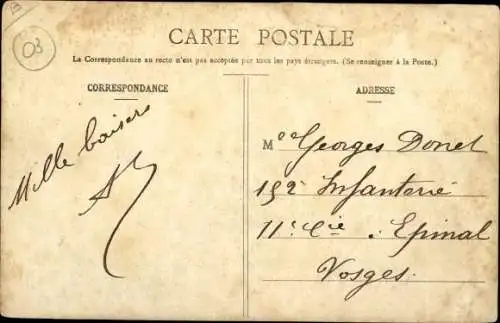 03
CARTE POSTALE
La Correspondance au recto n'est pas acceptée par tous les pays étrangers. (Se renseigner à la Poste.)
CORRESPONDANCE
Mille baisers
ADRESSE
M Georges Donet
152 Infanterie
11e Cie. Epinal
Vosges.